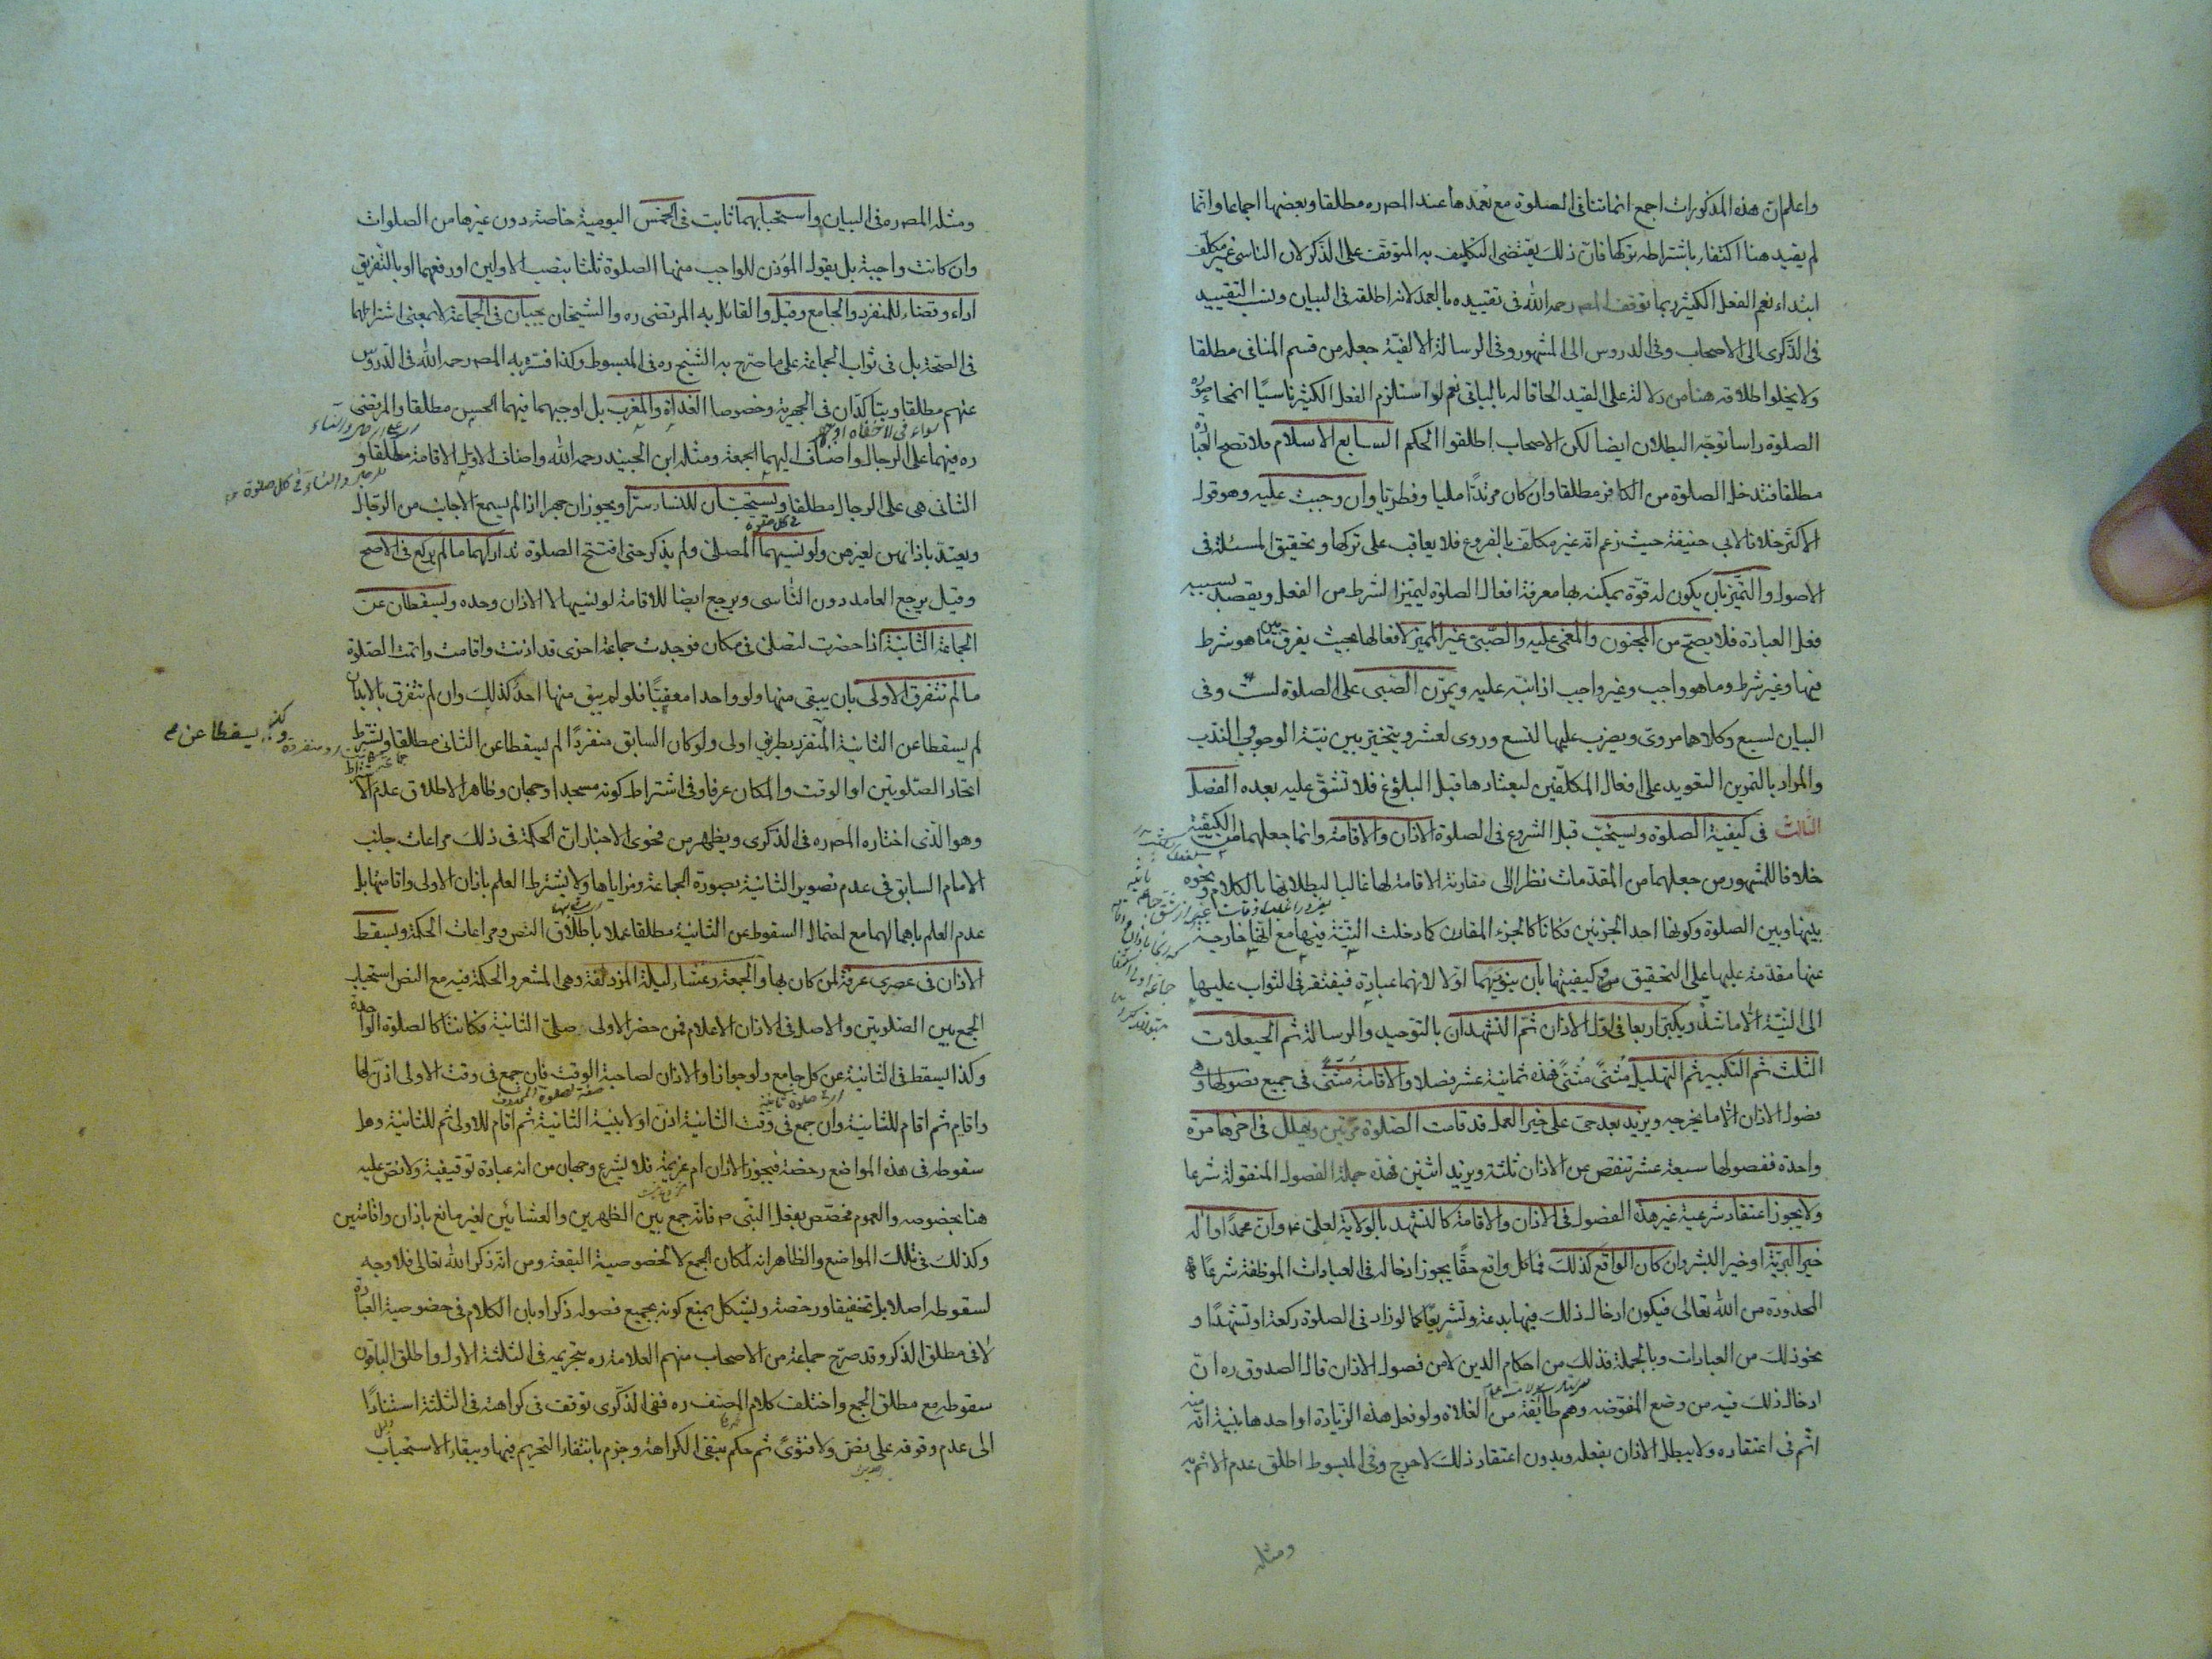 واعلم ان هذه المذكورات اجمع انما تنافى الصلوة مع تعمدها عند المص ره مطلقا وبعضها اجماعا وانما
لم يقيد هنا اكتفاء باشتراطه تركها فان ذلك يقتضى التكليف به المتوقف على الذكر لان الناسى غير مكلف
ابتداء نعم الفعل الكثير ربما توقف المص رحمه الله فى تقييده بالعمد لانه اطلقه فى البيان ونسب التقييد
فى الذكرى الى الاصحاب وفى الدروس الى المشهور وفى الرسالة الالفية جعله من قسم المنافى مطلقا
ولا يخلوا اطلاقه هنا من دلالة على القيد الحاقا له بالباقى نعم لو استلزم الفعل الكثير ناسيًا انمحاء صورة
الصلوة راسا توجه البطلان ايضا لكن الاصحاب اطلقوا الحكم السابع الاسلام فلا تصح العبادة
مطلقا فتدخل الصلوة من الكافر مطلقا وان كان مرتدًا مليا وفطريا وان وجبت عليه وهو قول
الاكثر خلافا لابى حنيفة حيث زعم انه غير مكلف بالفروع فلا يعاقب على تركها وتحقيق المسئلة فى
الاصول والتمييز بان يكون له قوة يمكنه بها معرفة افعال الصلوة ليميز الشرط من الفعل ويقصد بسببه
فعل العبادة فلا يصح من المجنون والمغمى عليه والصبى غير المميز لافعالها بحيث يفرق بين ما هو شرط
فيها وغير شرط وما هو واجب وغير واجب اذا نبه عليه ويمرن الصبى على الصلوة لست وفى
البيان لسبع وكلاهما مروى ويضرب عليها لتسع وروى لعشر ويتخير بين نية الوجوب والندب
والمراد بالتمرين التعويد على افعال المكلفين ليعتادها قبل البلوغ فلا تشق عليه بعده الفصل
الثالث فى كيفية الصلوة ويستحب قبل الشروع فى الصلوة الاذان والاقامة وانما جعلهما من الكيفية
خلافا للمشهور من جعلهما من المقدمات نظرا الى مقارنة الاقامة لها غالبا لبطلانها بالكلام ونحوه
بينها وبين الصلوة وكونها احد الجزئين فكانا كالجزء المقارن كما دخلت النية فيها مع انها خارجة
عنها مقدمة عليها على التحقيق وكيفيتهما بان ينويهما اولا لانهما عبادة فيفتقر فى الثواب عليها
الى النية الا ما شذ ويكبر اربعا فى اول الاذان ثم التشهدان بالتوحيد والرسالة ثم الحيعلات
الثلث ثم التكبير ثم التهليل مثنى مثنى فهذه ثمانية عشر فصلا والاقامة مثنى فى جميع فصولها وهى
فصول الاذان الا ما يخرجه ويزيد بعد حى على خير العمل قد قامت الصلوة مرتين ويهلل فى اخرها مرة
واحدة ففصولها سبعة عشر تنقص عن الاذان ثلثة ويزيد اثنين فهذه جملة الفصول المنقولة شرعا
ولا يجوز اعتقاد شرعية غير هذه الفصول فى الاذان والاقامة كالتشهد بالولاية لعلى ع وان محمدًا واله
خير البرية او خير البشر وان كان الواقع كذلك فما كل واقع حقًا يجوز ادخاله فى العبادات الموظفة شرعًا
المحدودة من الله تعالى فيكون ادخال ذلك فيها بدعة وتشريعًا كما لو زاد فى الصلوة ركعة او تشهدًا و
نحو ذلك من العبادات وبالجملة فذلك من احكام الدين لا من فصول الاذان قال الصدوق ره ان
ادخال ذلك فيه من وضع المفوضه وهم طائفة من الغلاة ولو فعل هذه الزيادة او احدها بنية انه منه
اثم فى اعتقاده ولا يبطل الاذان بفعله وبدون اعتقاد ذلك لا حرج وفى المبسوط اطلق عدم الاثم به
ومثله
ومثله المص ره فى البيان واستحبابهما ثابت فى الخمس اليومية خاصة دون غيرها من الصلوات
وان كانت واجبة بل يقول المؤذن للواجب منها الصلوة ثلثا بنصب الاولين او رفعهما او بالتفريق
اداء وقضاء للمنفرد والجامع وقيل والقائل به المرتضى ره والشيخان يجبان فى الجماعة لا بمعنى اشتراطهما
فى الصحة بل فى ثواب الجماعة على ما صرح به الشيخ ره فى المبسوط وكذا فسره به المص رحمه الله فى الدروس
عنهم مطلقا ويتاكدان فى الجهرية وخصوصا الغداة والمغرب بل اوجبهما فيهما الحسن مطلقا والمرتضى
ره فيهما على الرجال واضاف اليهما الجمعة ومثله ابن الجنيد رحمه الله واضاف الاول الاقامة مطلقا و
الثانى هى على الرجال مطلقا ويستحبان للنساء سرا ويجوزان جهرا اذا لم يسمع الاجانب من الرجال
ويعتد باذانهن لغيرهن ولو نسيهما المصلى ولم يذكر حتى افتتح الصلوة تداركهما ما لم يركع فى الاصح
وقيل يرجع العامد دون الناسى ويرجع ايضا للاقامة لو نسيها لا الاذان وحده ويسقطان عن
الجماعة الثانية اذا حضرت لتصلى فى مكان فوجدت جماعة اخرى قد اذنت واقامت واتمت الصلوة
ما لم تتفرق الاولى بان يبقى منها ولو واحدا معقبًا فلو لم يبق منها احد كذلك وان لم تتفرق بالابدان
لم يسقطا عن الثانية المنفرد بطريق اولى ولو كان السابق منفردًا لم يسقطا عن الثانى مطلقا ويشترط
اتحاد الصلوتين او الوقت والمكان عرفا وفى اشتراط كونه مسجدا وجهان وظاهر الاطلاق عدم الاشتراط
وهو الذى اختاره المص ره فى الذكرى ويظهر من فحوى الاخبار ان الحكمة فى ذلك مراعات جانب
الامام السابق فى عدم تصوير الثانية بصورة الجماعة ومزاياها ولا يشترط العلم باذان الاولى واقامتها بل
عدم العلم باهمالهما مع احتمال السقوط عن الثانية مطلقا عملا باطلاق النص ومراعات الحكمة ويسقط
الاذان فى عصرى عرفة لمن كان بها والجمعة وعشاء ليلة المزدلفة وهى المشعر والحكمة فيه مع النص استحباب
الجمع بين الصلوتين والاصل فى الاذان الاعلام فمن حضر الاولى صلى الثانية فكانتا كالصلوة الواحدة
وكذا يسقط فى الثانية عن كل جامع ولو جوازا والاذان لصاحبة الوقت فان جمع فى وقت الاولى اذن لها
واقام ثم اقام للثانية وان جمع فى وقت الثانية اذن اولا بنية الثانية ثم اقام للاولى ثم للثانية وهل
سقوطه فى هذه المواضع رخصة فيجوز الاذان ام عزيمة فلا يشرع وجهان من انه عبادة توقيفية ولا نص عليه
هنا بخصوصه والعموم مخصص بفعل النبى ص فانه جمع بين الظهرين والعشائين لغير مانع باذان واقامتين
وكذلك فى تلك المواضع والظاهر انه لمكان الجمع لا لخصوصية البقعة ومن انه ذكر الله تعالى فلا وجه
لسقوطه اصلا بل تخفيفا ورخصة ويشكل بمنع كونه بجميع فصوله ذكرا وبان الكلام فى خصوصية العبادة
لا فى مطلق الذكر وقد صرح جماعة من الاصحاب منهم العلامة ره بتحريمه فى الثلثة الاول واطلق الباقون
سقوطه مع مطلق الجمع واختلف كلام المصنف ره ففى الذكرى توقف فى كراهته فى الثلثة استنادًا
الى عدم وقوفه على نص ولا فتوى ثم حكم بنفى الكراهة وجزم بانتفاء التحريم فيها وببقاء الاستحباب